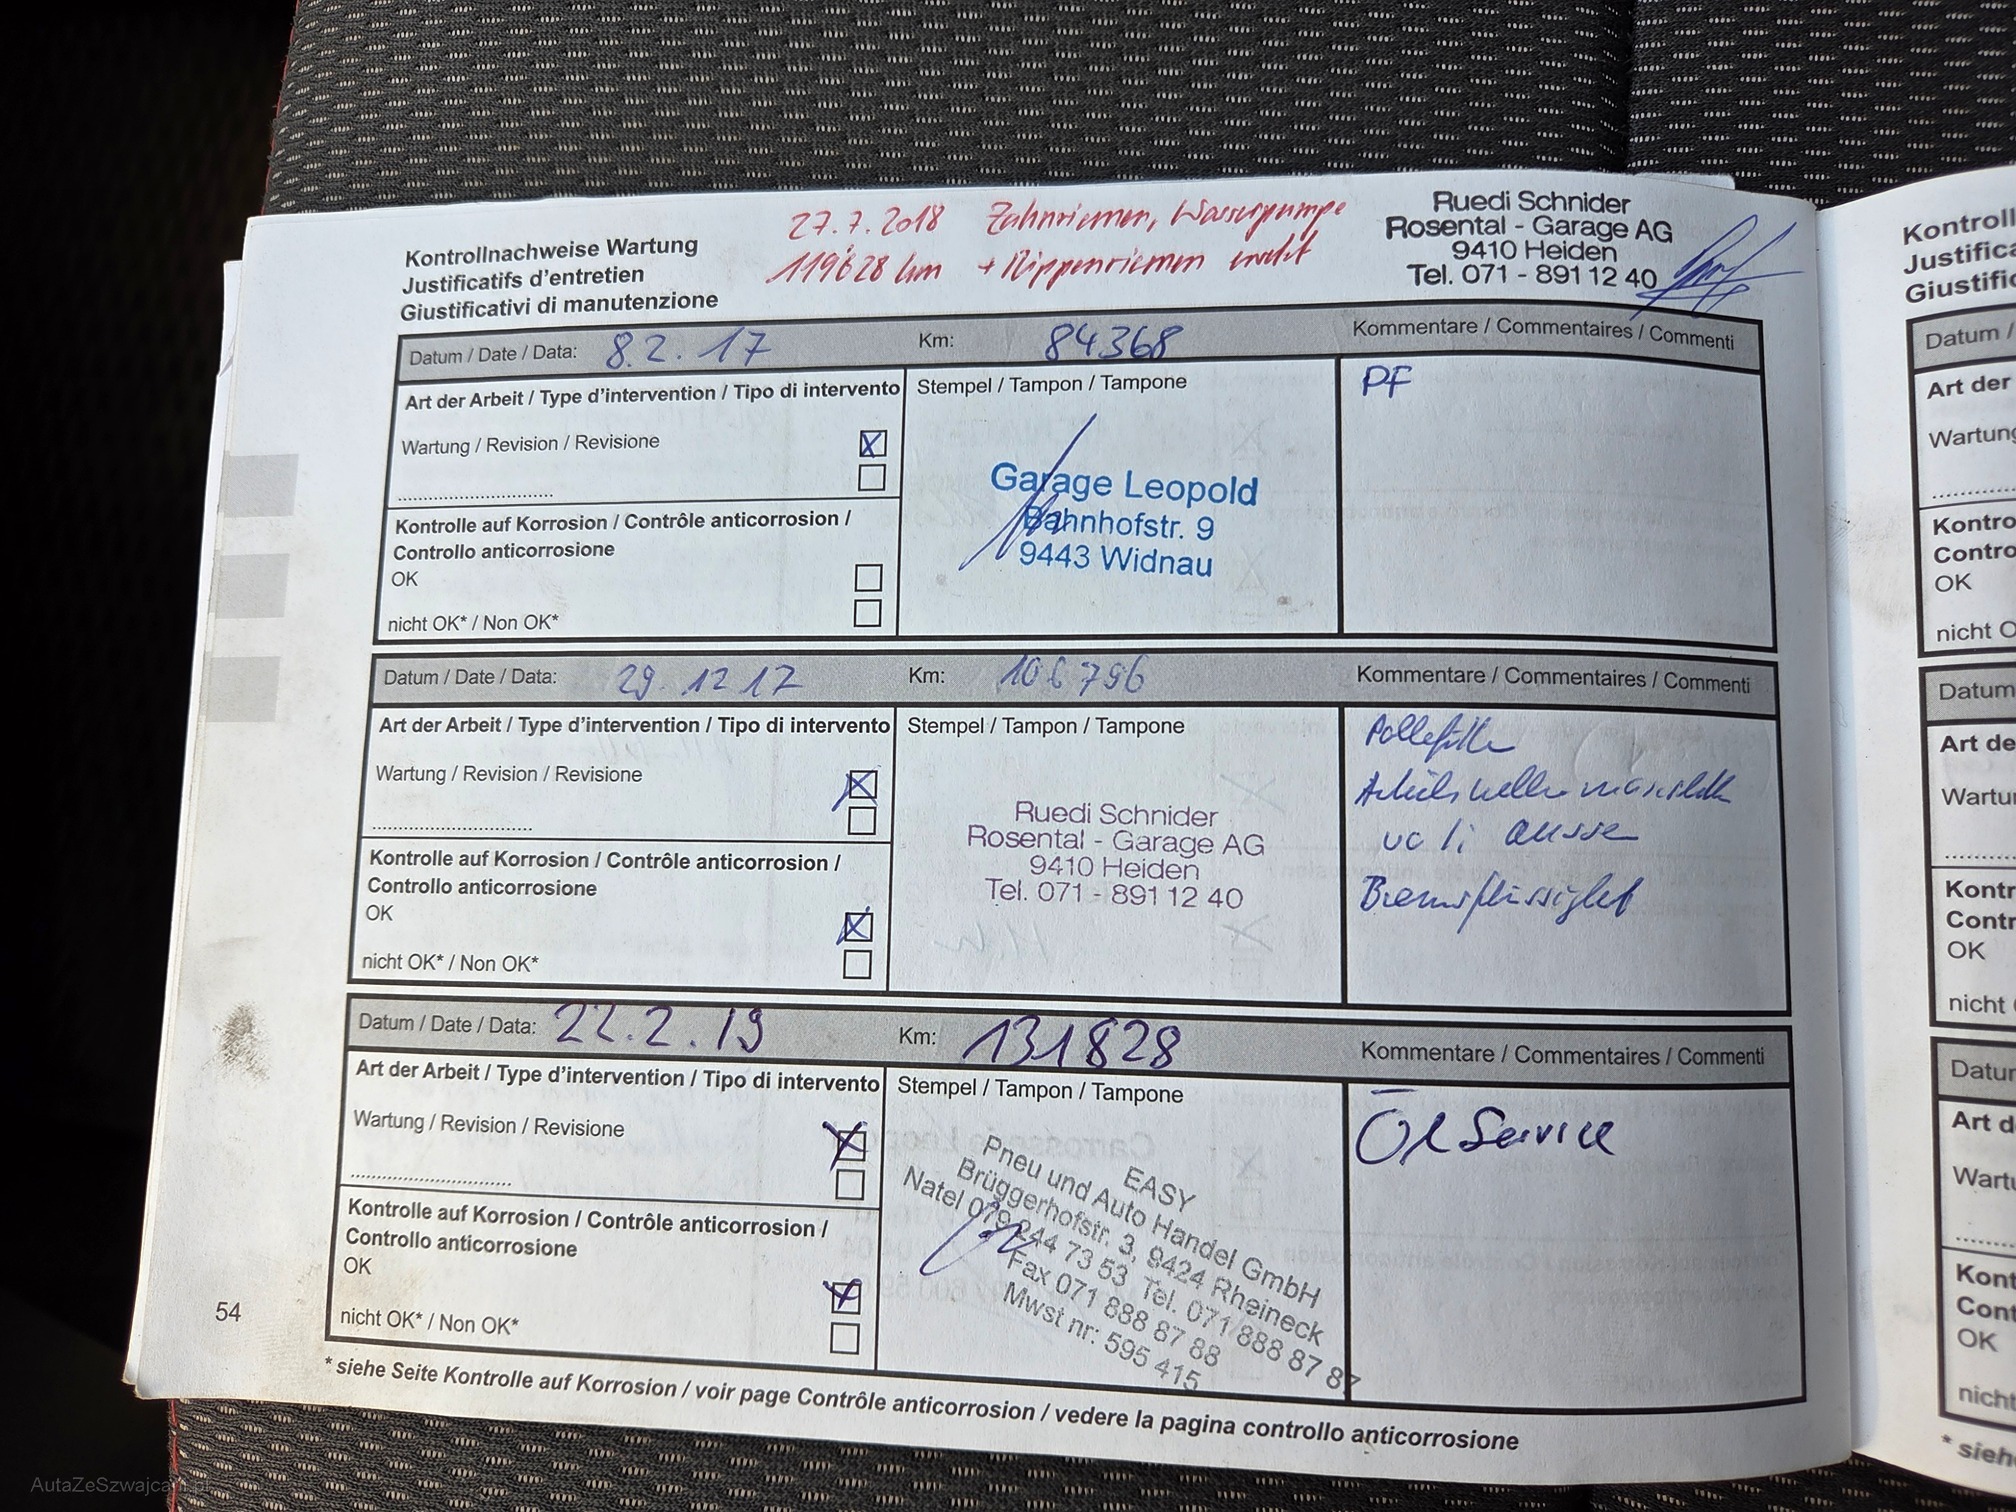 Kontrollnachweise Wartung
Justificatifs d'entretien
Giustificativi di manutenzione
27.7.2018 Zahnriemen, Wasserpumpe
119628 km + Rippenriemen
Ruedi Schnider
Rosental - Garage AG
9410 Heiden
Tel. 071 - 891 12 40
Datum / Date / Data: 8.2.17
Km: 84368
Kommentare / Commentaires / Commenti
Art der Arbeit / Type d'intervention / Tipo di intervento
Wartung / Revision / Revisione
Kontrolle auf Korrosion / Contrôle anticorrosion /
Controllo anticorrosione
OK
nicht OK* / Non OK*
Stempel / Tampon / Tampone
Garage Leopold
Bahnhofstr. 9
9443 Widnau
PF
Datum / Date / Data: 29.12.17
Km: 106796
Kommentare / Commentaires / Commenti
Art der Arbeit / Type d'intervention / Tipo di intervento
Wartung / Revision / Revisione
Kontrolle auf Korrosion / Contrôle anticorrosion /
Controllo anticorrosione
OK
nicht OK* / Non OK*
Stempel / Tampon / Tampone
Ruedi Schnider
Rosental - Garage AG
9410 Heiden
Tel. 071 - 891 12 40
Datum / Date / Data: 22.2.19
Km: 131828
Kommentare / Commentaires / Commenti
Art der Arbeit / Type d'intervention / Tipo di intervento
Wartung / Revision / Revisione
Kontrolle auf Korrosion / Contrôle anticorrosion /
Controllo anticorrosione
OK
nicht OK* / Non OK*
Stempel / Tampon / Tampone
EASY
Pneu und Auto Handel GmbH
Brüggerhofstr. 3, 9424 Rheineck
Natel 079 244 73 53 Tel. 071 888 87 87
Fax 071 888 87 88
Mwst nr: 595 415
Öl Service
54
* siehe Seite Kontrolle auf Korrosion / voir page Contrôle anticorrosion / vedere la pagina controllo anticorrosione
Datum /
Art der
OK
Datum
Art de
OK
Art d
OK
* sieh